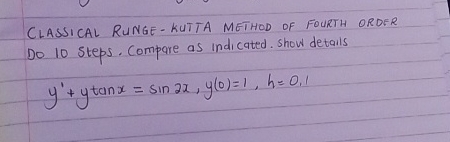 CLASSICAL RUNGE - KUTTA METHOD OF FOURTH ORDER
Do 10 steps. Compare as indicated. Show details
y' + y tan x = sin 2x, y(0) = 1, h = 0,1